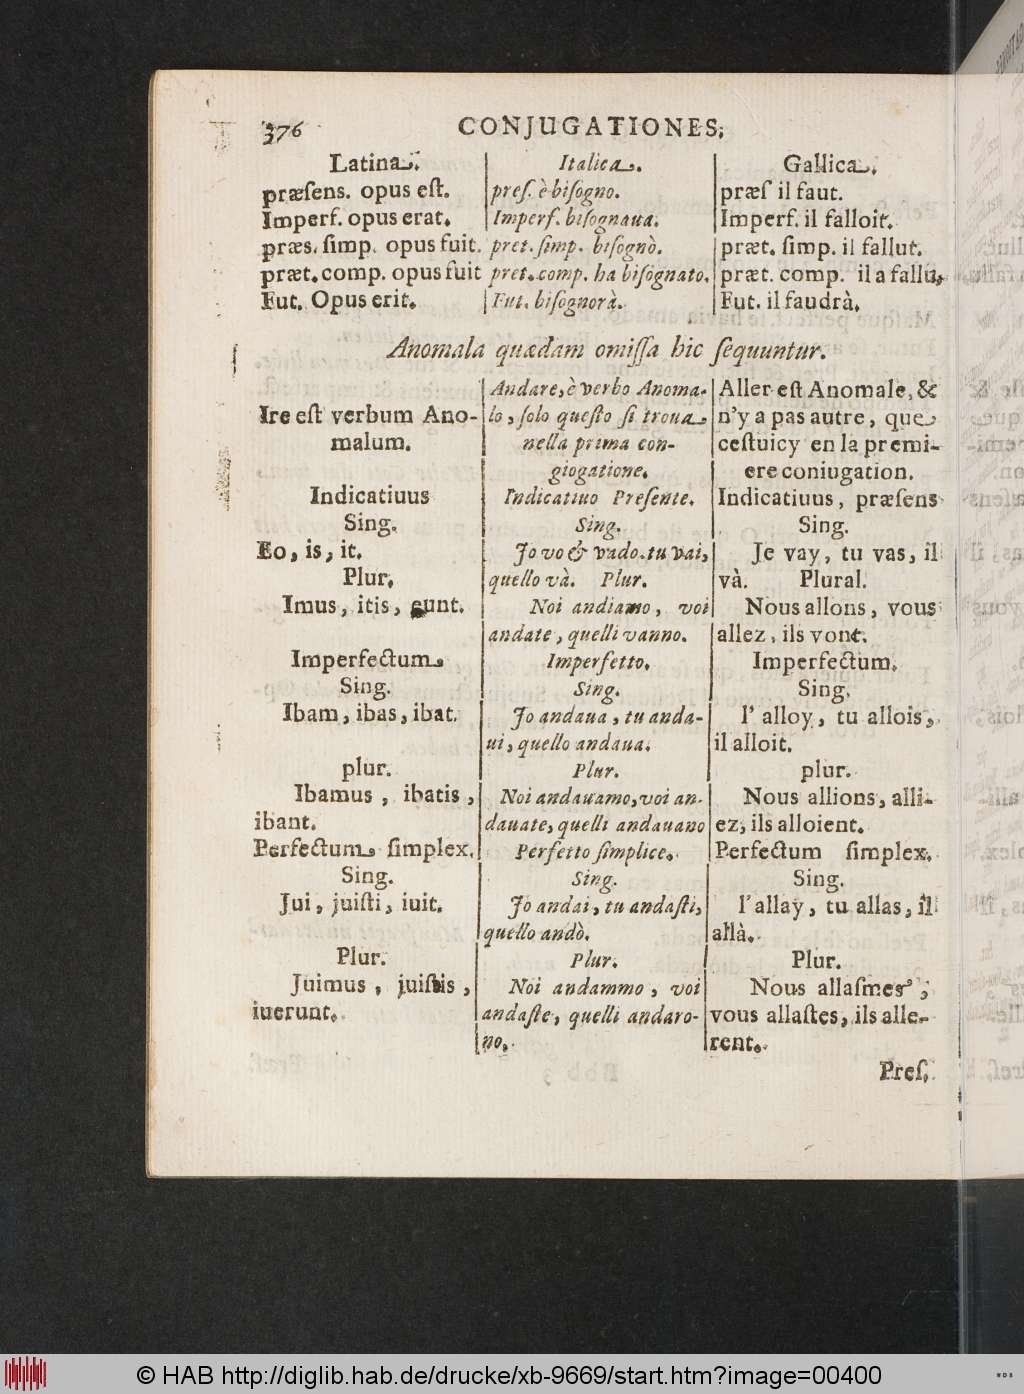 376 CONJUGATIONES,
Latina. Italica. Gallica.
præſens. opus eſt. preſ. è biſogno. præſ il faut.
Imperf. opus erat. Imperf. biſognaua. Imperf. il falloit.
præs. ſimp. opus fuit. pret. ſimp. biſognò. præt. ſimp. il fallut.
præt. comp. opus fuit pret. comp. ha biſognato. præt. comp. il a fallu,
Fut. Opus erit. Fut. biſognorà. Fut. il faudrà.
Anomala quædam omiſſa hic ſequuntur.
Andare, è verbo Anoma- Aller eſt Anomale, &
Ire eſt verbum Ano- lo, ſolo queſto ſi troua n'y a pas autre, que
malum. nella prima con- ceſtuicy en la premi-
giogatione. ere coniugation.
Indicatiuus Indicatiuo Preſente. Indicatiuus, præſens
Sing. Sing. Sing.
Eo, is, it. Jo vo & vado. tu vai, Je vay, tu vas, il
Plur. quello và. Plur. và. Plural.
Imus, itis, eunt. Noi andiamo, voi Nous allons, vous
andate, quelli vanno. allez, ils vont.
Imperfectum Imperfetto. Imperfectum.
Sing. Sing. Sing.
Ibam, ibas, ibat. Jo andaua, tu anda- l' alloy, tu allois,
ui, quello andaua. il alloit.
plur. Plur. plur.
Ibamus, ibatis, Noi andauamo, voi an- Nous allions, alli-
ibant. dauate, quelli andauano ez, ils alloient.
Perfectum ſimplex. Perfetto ſimplice. Perfectum ſimplex.
Sing. Sing. Sing.
Jui, juiſti, iuit. Jo andai, tu andaſti, l'allay, tu allas, il
quello andò. allà.
Plur. Plur. Plur.
Juimus, juiſtis, Noi andammo, voi Nous allaſmes,
iuerunt. andaſte, quelli andaro- vous allaſtes, ils alle-
no. rent.
Preſ.
© HAB http://diglib.hab.de/drucke/xb-9669/start.htm?image=00400